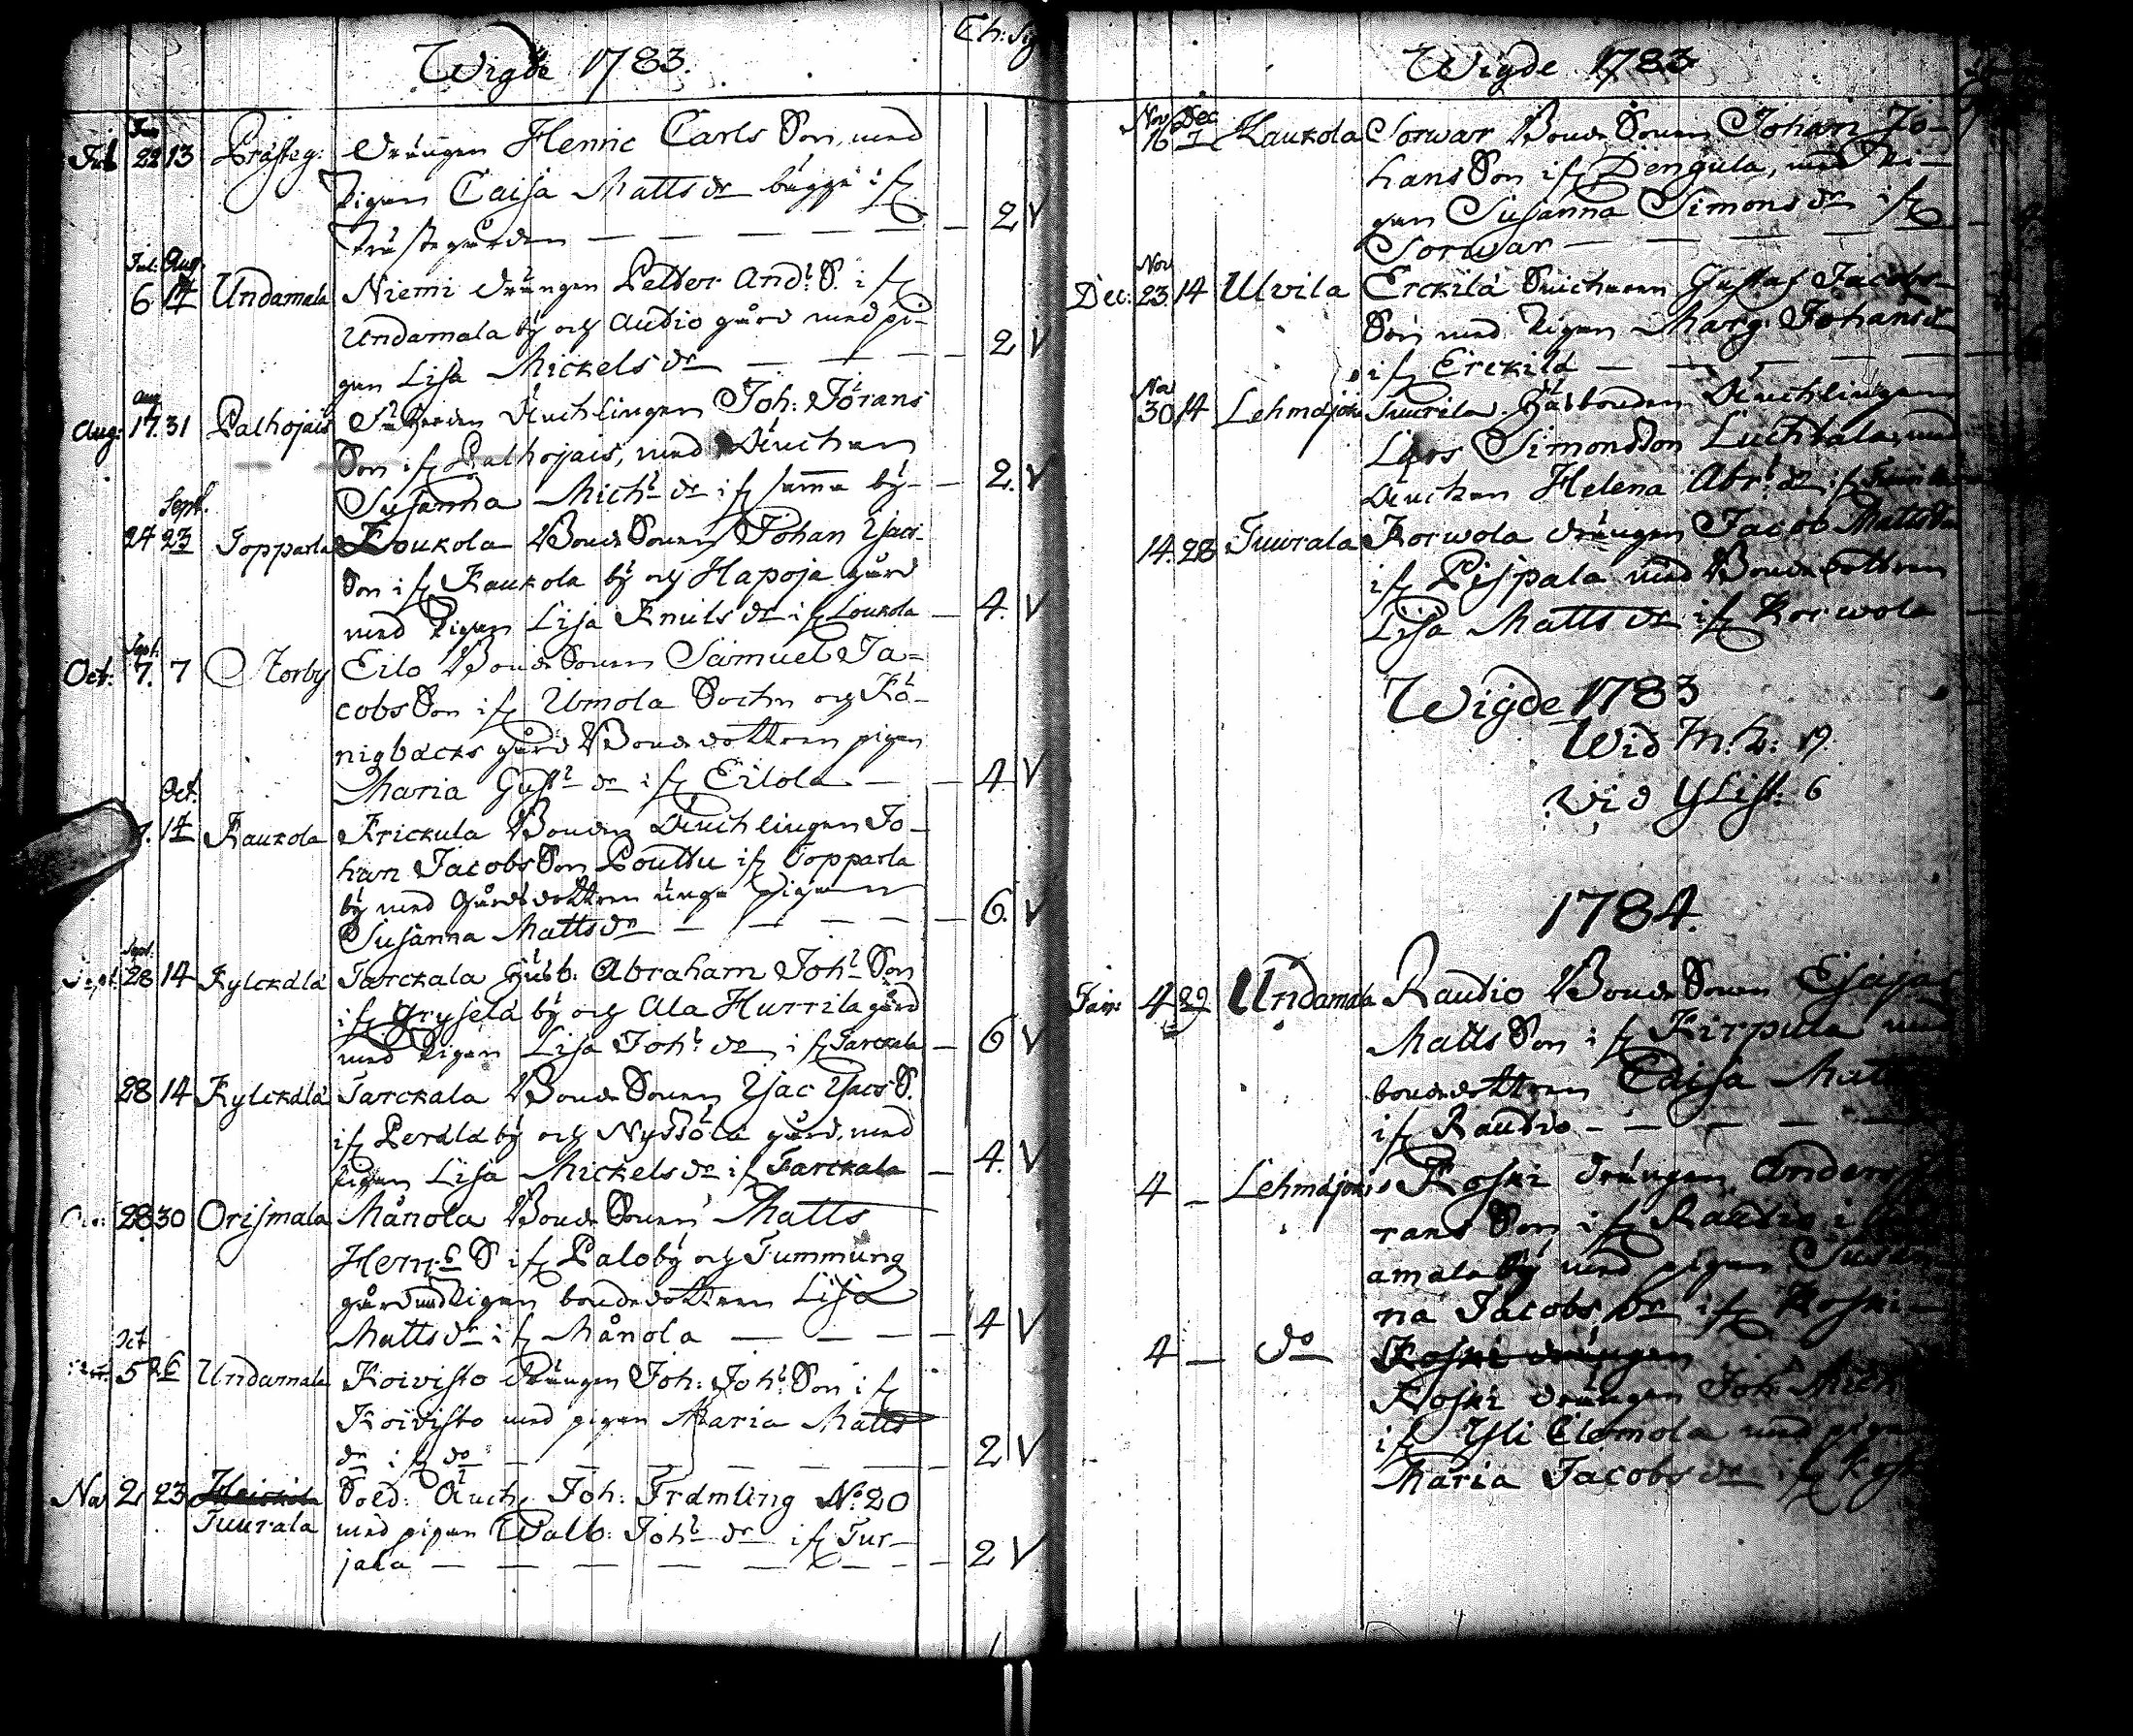 Ch: Sg
Wigde 1783.
Jun
Jul 22 13 Prästeg: drängen Henric Carls Son, med
Pigan Caisa Matts dr bägge ifr
Prästegården — — — — — 2 V
Jul: Aug.
6 17 Undamala Niemi drängen Petter And: S. ifr
Undamala by och Audio gård med pi-
gan Lisa Mickels dr — — — 2 V
aug
Aug: 17. 31 Palhojais Enchlingen Joh: Jörans
Son ifr Palhojais, med Änckan
Susanna Mich: dr ifr samma by — 2. V
Sept.
24 23 Topparla Loukola Bonde Sonen Johan Ysac-
Son ifr Kaukola by och Hapoja gård
med Pigan Lisa Knuts dr ifr Loukola — 4. V
Sept.
Oct: 7. 7 Storby Eilo Bonde Sonen Samuel Ja=
cobs Son ifr Umola Sochn och Kö-
nigbäcks gård Bondedottren pigan
Maria Gust: dr ifr Eilola — — 4 V
Oct.
7. 14 Kaukola Krickula Bonden Änchlingen Jo-
han Jacobs Son Pouttu ifr Topparla
by med Gårdsdottren unga pigan
Susanna Matts dr — — — — 6. V
Sept:
Sept. 28 14 Kylckälä Tarckala Husb: Abraham Joh: Son
ifr Oryselä by och Ala Hurrila gård
med Pigan Lisa Joh: dr ifr Tarckala — 6 V
28 14 Kylckälä Tarckala Bonde Sonen Ysac Ysacs S.
ifr Perälä by och Nyssölä gård, med
Pigan Lisa Mickels dr ifr Tarckala — 4. V
28 30 Orismala Månola Bonde Sonen Matts
Henr: S ifr Paloby och Tummung
gård med Pigan bondedottren Lisa
Matts dr ifr Månola — — — — 4 V
Oct
5 26 Undamala Koivisto Drängen Joh: Joh: Son ifr
Koivisto med pigan Maria Matts
dr ifr do — — — — — — 2 V
No 2 23 Heickola Sold: Änch: Joh: Främling No 20
Tuurala med pigan Walb: Joh: dr ifr Tur-
jala — — — — — — — 2 V
Wigde 1783
Nov Dec
16 7 Kaukola Sorwar Bonde Sonen Johan Jo-
hans Son ifr Dengula, med Pi-
gan Susanna Simons dr ifr
Sorwar — — — — —
Nov
Dec: 23 14 Ulvila Erckilä Gustaf Jacobs
Son med Pigan Marg: Johans dr
ifr Erckilä — — — — —
No
30 14 Lehmäjoki Tuurila Husbonden Änchlingen
Lars Simonsson Luchtala, med
Änckan Helena Abr: dr ifr
14. 28 Tuurala Korwola drängen Jacob Matts Son
ifr Pispala med Bondedottren
Lisa Matts dr ifr Korwola —
Wigde 1783
Wid M. K: 19
Wid YList. 6
1784.
Jan: 4 29 Undamala Raudio Bonde Sonen Esajas
Matts Son ifr Kirpula med
bondedottren Caisa Matt
ifr Raudio - — — — —
4 — Lehmäjoki Koski drängen Anders
rans Son ifr Raudio i
amala by med pigan Susan
na Jacobs dr ifr Koski —
4 — do Koski drängen
Koski drängen Joh: Mich
ifr Yli Elomola med piga
Maria Jacobs dr ifr Kos